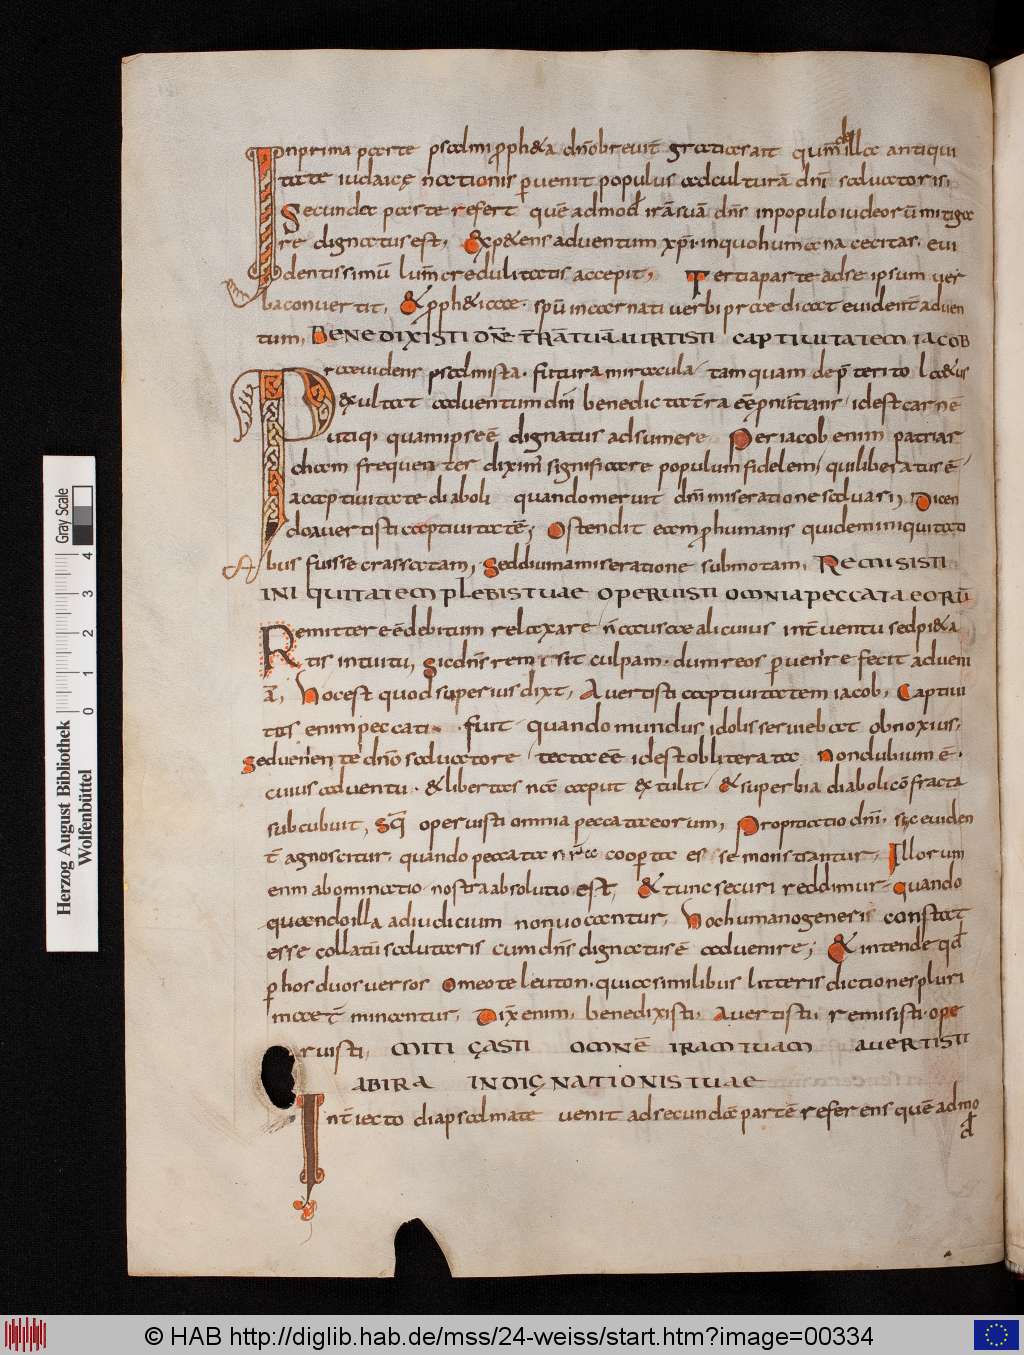 Inprima parte psalmi ppheta dño breuit gratias ait qum de illa antiqui
tate iudaicę nationis puenit populus adculturã dñi saluatoris,
Secunda parte refert quẽadmod irãsuã dñs inpopulo iudeorũ mitiga
re dignatus est, Expetens aduentum xp̄i. inquo humana cecitas. eui
dentissimũ lum̄ credulitatis accepit, Tertia parte adse ipsum uer
ba conuertit, Et pphetica. spũ incarnati uerbi praedicat euident̄ aduen
tum, BENEDIXISTI DÑE T̄RÃ TUÃ AUERTISTI CAPTIUITATEM IACOB
Prouidens psalmista. futura miracula tamquam dep̄terito locutus
exultat aduentum dñi benedicta t̄ra
utiq, quam ipse ẽ dignatus adsumere Per iacob enim patriar
cham frequenter dixim significare populum fidelem, qui liberatus ẽ
a captiuitate diaboli quando meruit dñi miseratione saluari, Dicen
do auertisti captiuitatẽ; Ostendit eam p humanis quidem iniquitati
bus fuisse crassatam, Sed diuina miseratione submotam, REMISISTI
INIQUITATEM PLEBIS TUAE OPERUISTI OMNIA PECCATA EORŨ
Remittere ẽ debitum relaxare ñ causa alicuius int̄uentu sed pieta
tis intuitu, Sic dñs remisit culpam. dum reos p uenire fecit ad ueni
ã, Hoc est quod superius dixt, Auertisti captiuitatem iacob, Captiui
tas enim peccati. fuit quando mundus idolis seruiebat obnoxius,
Sed uenien te dño saluatore tecta eẽ id est obliterata Non dubium ẽ.
cuius aduentu. & libertas nõ caput extulit. & superbia diabolicõ fracta
subcubuit, Sq̃ operuisti omnia peccata eorum, Propitiatio dñi. sic euiden
t̄ agnoscitur, quando peccata nr̃a coopta es se monstrantur, Illorum
enim abominatio nostra absolutio est, Et tunc securi reddimur quando
quaendo illa ad iudicium non uocantur, Hoc humano generis constat
esse collatũ salutaris cum dñs dignatus ẽ aduenire; Et intende qd
p hos duos uersos omeoteleuton. quia similibus litteris dictiones pluri
mae t̄minantur, Dix enim, benedixisti, Auertisti, remisisti. ope
ruisti, MITIGASTI OMNẼ IRAM TUAM AUERTISTI
AB IRA INDIGNATIONIS TUAE
Int̄iecto diapsalmate uenit ad secundã partẽ referens quẽ admo
d
Herzog August Bibliothek
Wolfenbüttel
0 1 2 3 4
Gray Scale
© HAB http://diglib.hab.de/mss/24-weiss/start.htm?image=00334